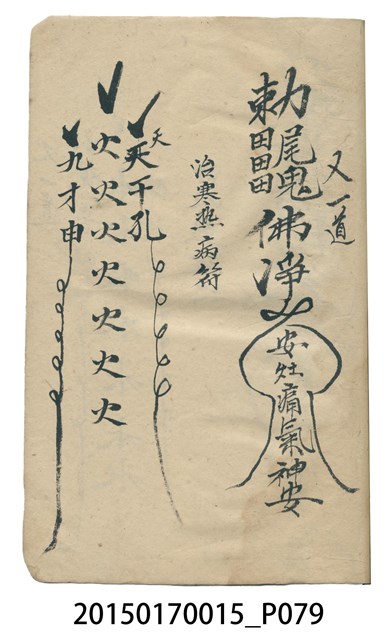 又一道
勅尾鬼佛淨
田田田田
安灶痛氣神安
治寒熱病符
天
千孔
火火火火火火火
九才申
20150170015_P079